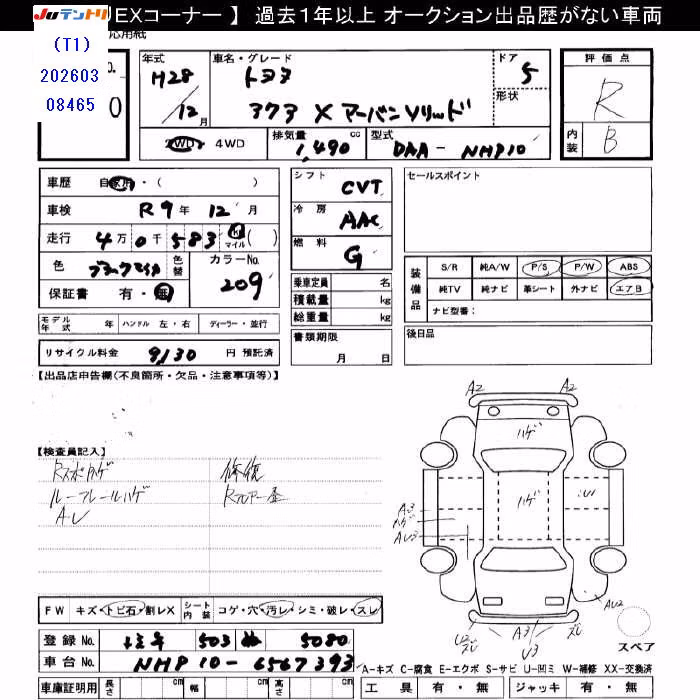 JUナントリ EXコーナー 】 過去1年以上 オークション出品歴がない車両
(T1)
202603
08465
応用紙
年式
H28
/12月
車名・グレード
トヨタ
373 X アーバンソリッド
ドア
5
形状
評価点
R
内装
B
2WD・4WD
排気量
1,490 cc
型式
DAA- NHP10
車歴 自家用・( )
車検 R9年 12月
走行 4万 0千 583 km マイル ( )
色 ブラックマイカ 色替
カラーNo. 209
保証書 有・無
シフト CVT
冷房 AAC
燃料 G
乗車定員 名
積載量 kg
総重量 kg
セールスポイント
装備品
S/R 純A/W P/S P/W ABS
純TV 純ナビ 革シート 外ナビ エアB
ナビ型番：
モデル年式 年 ハンドル 左・右 ディーラー・並行
書類期限
月 日
後日品
リサイクル料金 9,130 円 預託済
【出品店申告欄(不良箇所・欠品・注意事項等)】
A2 A2
【検査員記入】
ハゲ
修復
ルーフレールハゲ
Rフロアー歪
AU
ハゲ
A3
ハゲ
AU3
U
AU2
FW キズ・トビ石・割レX
シート内装 コゲ・穴・汚レ・シミ・破レ・スレ
A3
U3
スペア
登録No. 503 5080
車台No. NHP10-6567393
A-キズ C-腐食 E-エクボ S-サビ U-凹ミ W-補修 XX-交換済
車庫証明用 長さ cm 幅 cm 高さ cm
工具 有・無 ジャッキ 有・無